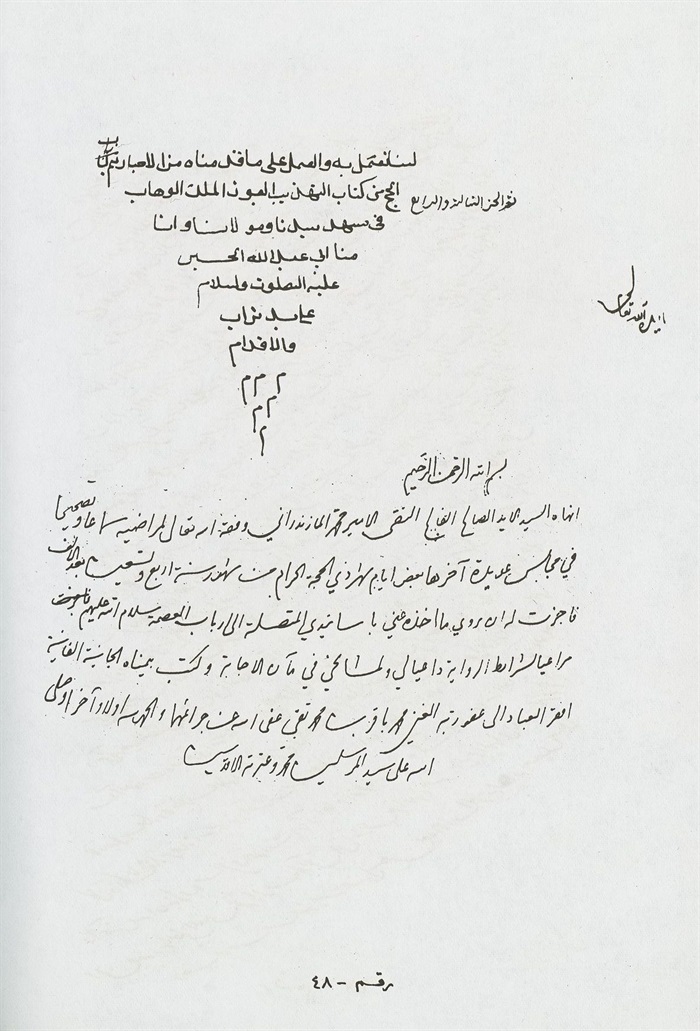 لسانعمل به والعمل على ما قدمناه من الاخبار تم كتاب
الحج من كتاب التهذيب بعون الملك الوهاب
تم الجزء الثالث والرابع
في مشهد سيدنا ومولانا و
منا ابي عبدالله الحسين
عليه الصلوت والسلام
على يد تراب
والاقدام
م م م م
م م
م
ايده الله تعالى
بسم الله الرحمن الرحيم
انهاه السيد الايد الصالح الفالح التقي الامير محمد المازندراني وفقه الله تعالى لمراضيه سماعا وتصحيحا
في مجالس عديدة آخرها بعض ايام شهر ذي الحجة الحرام من شهور سنة اربع وتسعين بعد الالف
فاجزت له ان يروي ما اخذه عني باسانيدي المتصلة الى ارباب العصمة سلام الله عليهم
مراعيا لشرائط الرواية داعيا لي ولمشائخي في مآن الاجابة وكتب بيمناه الجانية الفانية
افقر العباد الى عفو ربه الغني محمد باقر بن محمد تقي عفى الله عن جرائمهما والحمد لله اولا وآخرا وصلى
الله على سيد المرسلين محمد وعترته الاقدسين
رقم - ٤٨